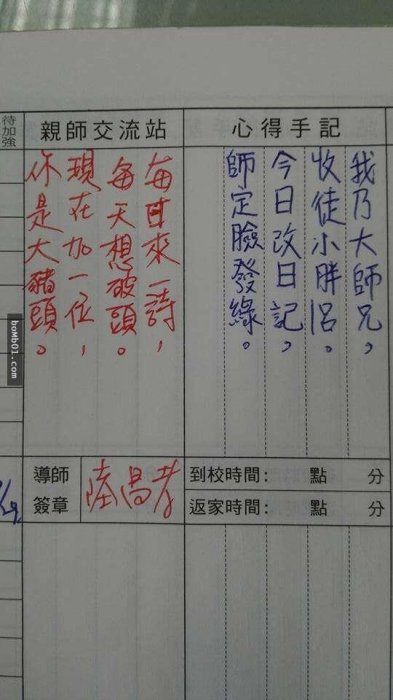 心得手記
我乃大師兄，
收徒小胖呂。
今日改日記，
師定臉發綠。
親師交流站
每日來一詩，
每天想破頭。
現在加一位，
你是大豬頭。
待加強
到校時間： 點 分
返家時間： 點 分
導師
簽章
boMb01.com